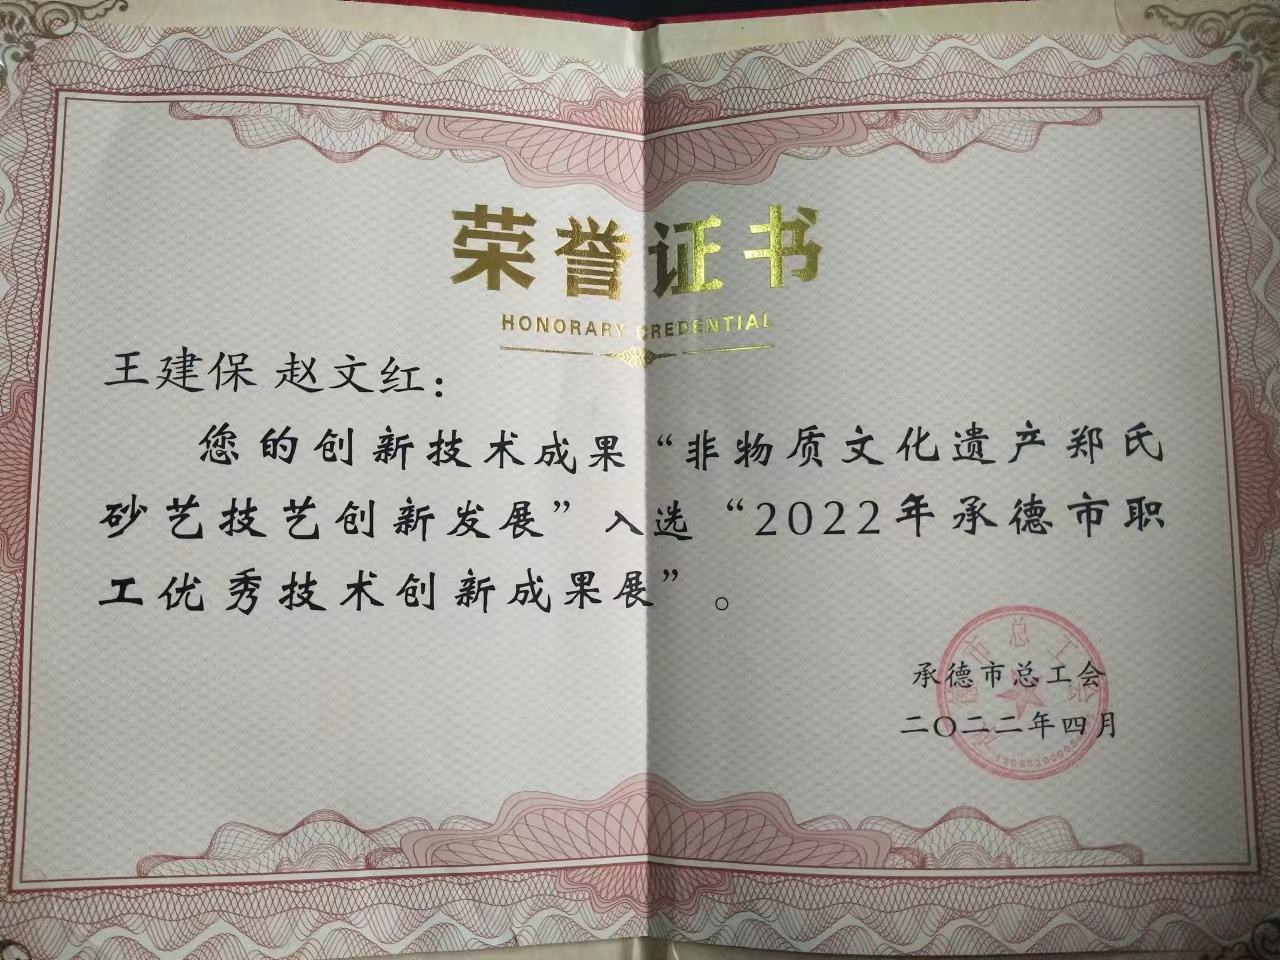 荣誉证书
HONORARY CREDENTIAL
王建保 赵文红：
您的创新技术成果“非物质文化遗产郑氏
砂艺技艺创新发展”入选“2022年承德市职
工优秀技术创新成果展”。
承德市总工会
二〇二二年四月